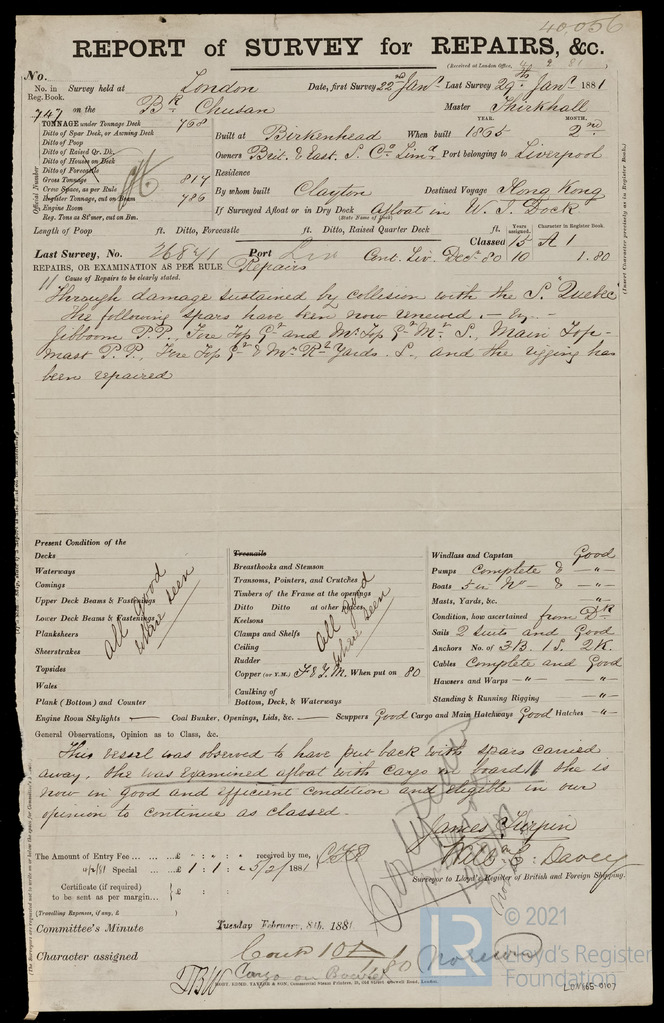 40,056
REPORT of SURVEY for REPAIRS, &c.
(Received at London Office, 4 2 81 )
No.
No. in Reg. Book. Survey held at London Date, first Survey 22nd Jany. Last Survey 29th Jany. 1881
747 on the Bk Chusan Master Thirkhall
TONNAGE under Tonnage Deck 768
Ditto of Spar Deck, or Awning Deck
Ditto of Poop
Ditto of Raised Qr. Dk.
Ditto of Houses on Deck
Ditto of Forecastle
Gross Tonnage 814
Crew Space, as per Rule
Register Tonnage, cut on Beam 786
Engine Room
Reg. Tons as St'mer, cut on Bm.
Official Number
YEAR. MONTH.
Built at Birkenhead When built 1865 2nd
Owners Brit. & East. S. Co Limd Port belonging to Liverpool
Residence
By whom built Clayton Destined Voyage Hong Kong
If Surveyed Afloat or in Dry Dock Afloat in W. I. Dock
(State Name of Dock)
Length of Poop ft. Ditto, Forecastle ft. Ditto, Raised Quarter Deck ft.
Years assigned. Character in Register Book.
Classed 15 A 1
Last Survey, No. 26841 Port Liv Cont. Liv. Decr. 80 10 1.80
(Insert Character precisely as in Register Book.)
REPAIRS, OR EXAMINATION AS PER RULE Repairs
Cause of Repairs to be clearly stated.
Through damage sustained by collision with the S. "Quebec"
the following spars have been now renewed
Jibboom P.P., Fore Top Gt and Mn Top Gt Mt S., Main Top-
mast P.P., Fore Top Gt & Mn Rl Yards. S., and the rigging has
been repaired
Present Condition of the
Decks
Waterways
Comings
Upper Deck Beams & Fastenings
Lower Deck Beams & Fastenings
Planksheers
Sheerstrakes
Topsides
Wales
Plank (Bottom) and Counter
All good where seen
Treenails
Breasthooks and Stemson
Transoms, Pointers, and Crutches
Timbers of the Frame at the openings
Ditto Ditto at other places
Keelsons
Clamps and Shelfs
Ceiling
Rudder
Copper (or Y.M.) F & Y.M. When put on 80
Caulking of
Bottom, Deck, & Waterways
All good where seen
Windlass and Capstan Good
Pumps Complete & —"—
Boats 5 in No & —"—
Masts, Yards, &c. —"—
Condition, how ascertained from Dk
Sails 2 suits and Good
Anchors No. of 3B. 1S. 2K.
Cables Complete and Good
Hawsers and Warps —"— —"—
Standing & Running Rigging —"—
Engine Room Skylights — Coal Bunker, Openings, Lids, &c. — Scuppers Good Cargo and Main Hatchways Good Hatches —"—
General Observations, Opinion as to Class, &c.
This vessel was observed to have put back with spars carried
away. She was examined afloat with cargo on board. She is
now in good and efficient condition and eligible in our
opinion to continue as classed.
James Turpin
Surveyor to Lloyd's Register of British and Foreign Shipping.
The Amount of Entry Fee ... ... ... £ : : received by me,
Special ... £ 1 : 1 : 5/2/1881
Certificate (if required) to be sent as per margin... £ :
(Travelling Expenses, if any, £ )
Committee's Minute Tuesday February 8th. 1881
Character assigned Contd 10 A 1
1.80
Cargo on board
MONT. EDMD. TAYLOR & SON, Commercial Steam Printers,
© 2021
LR
Lloyd's Register
Foundation
LON865-0107